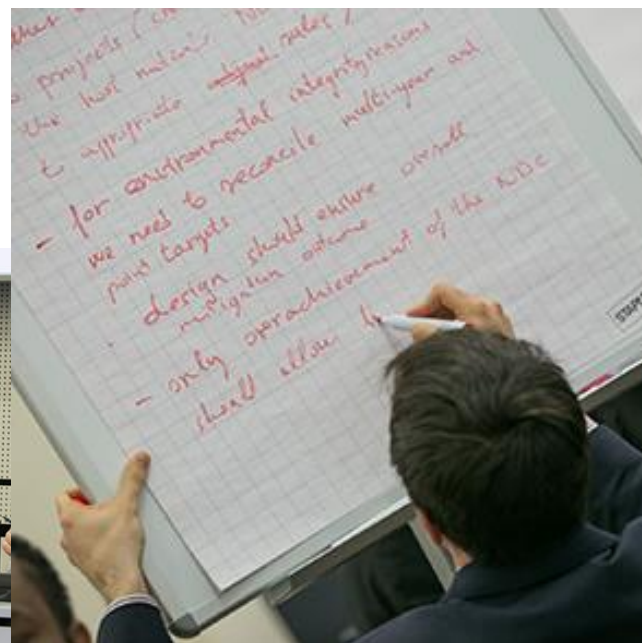 projects
the host nation's
to appropriate sales /
- for environmental integrity reasons
we need to reconcile multi-year and
point targets
· design should ensure overall
mitigation outcome
- only overachievement of the NDC
should allow
STAP